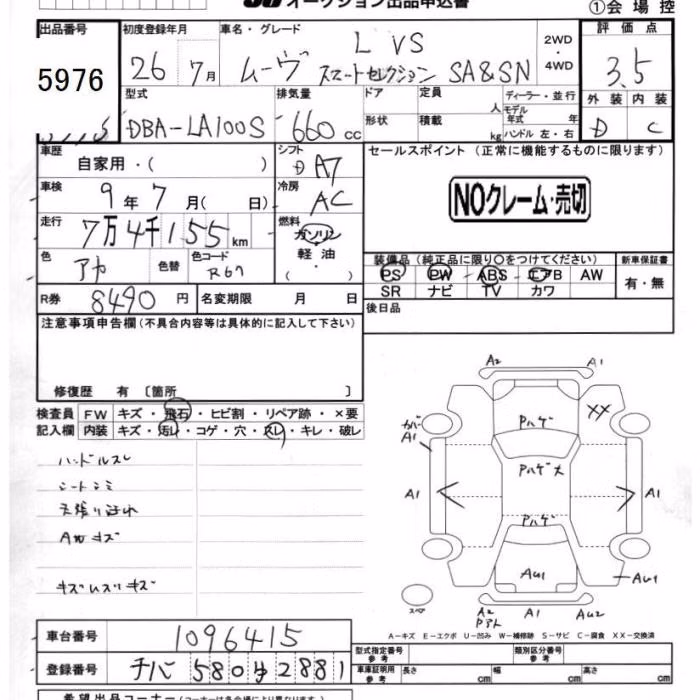 オークション出品申込書
①会場控
出品番号
5976
初度登録年月
26 7月
車名・グレード
ムーヴ L VS
スマートセレクション SA&SN
2WD
4WD
評価点
3.5
外装 内装
D C
型式
DBA-LA100S
排気量
660 cc
ドア
形状
定員 人
積載 kg
ディーラー・並行
モデル年式 年式
ハンドル 左・右
車歴
自家用・( )
シフト
D A7
セールスポイント (正常に機能するものに限ります)
NOクレーム・売切
車検
9年7月( 日)
冷房
AC
走行
7万4千155km
燃料
ガソリン
軽油
・( )
色
アカ
色替
色コード
R67
装備品(純正品に限り〇をつけてください)
PS PW ABS エアB AW
SR ナビ TV カワ
新車保証書
有・無
R券 8490円
名変期限 月 日
後日品
注意事項申告欄(不具合内容等は具体的に記入して下さい)
修復歴 有 〔箇所 〕
検査員
記入欄
FW キズ・飛石・ヒビ割・リペア跡・×要
内装 キズ・汚レ・コゲ・穴・スレ・キレ・破レ
ハンドルスレ
シートシミ
天張り汚れ
A他キズ
A2 A1
XX
Pハゲ
カバーA1
Pハゲ大
A1 A1
Pハゲ
AU1
AU1
スペア
A2 A1 AU2
A-キズ E-エクボ U-凹み W-補修跡 S-サビ C-腐食 XX-交換済
車台番号 1096415
登録番号
型式指定番号 参考
類別区分番号 参考
車庫証明用 参考 長さ cm 幅 cm 高さ cm
希望出品コーナー